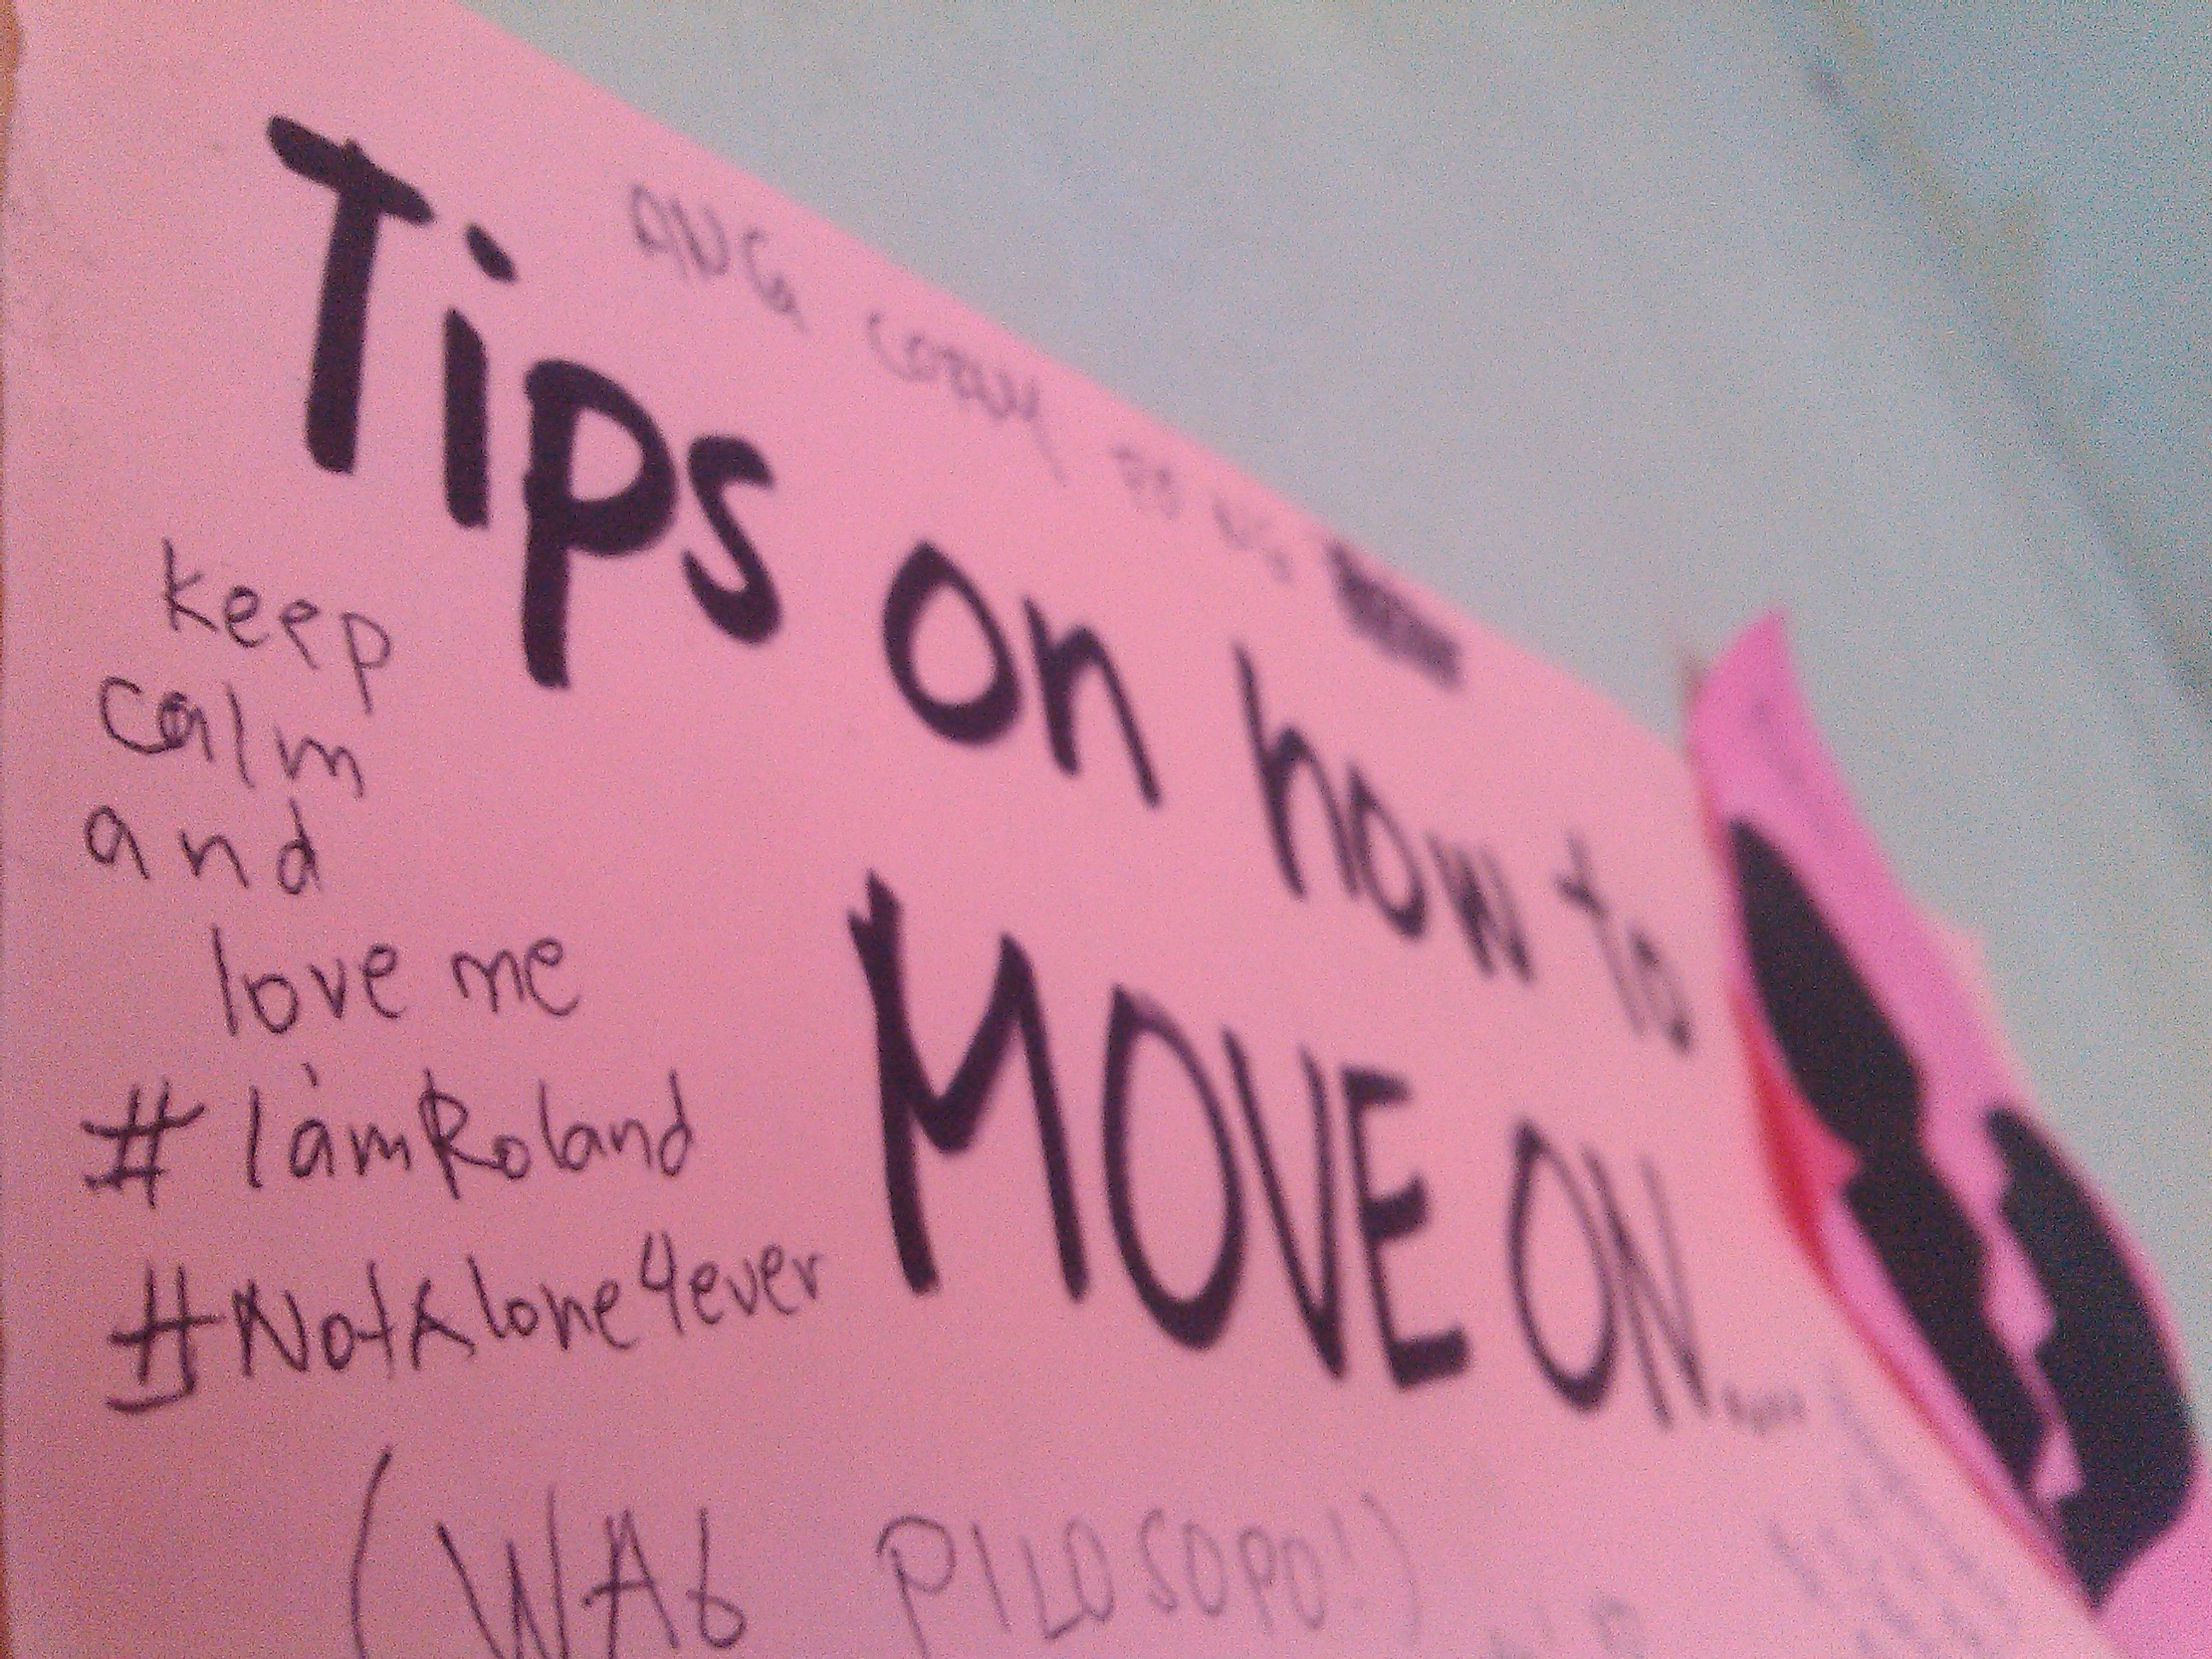 ANG CORNY PO NG
Tips on how to
MOVE ON....
keep
calm
and
love me
# IamRoland
#NotAlone4ever
(WAG PILOSOPO!)